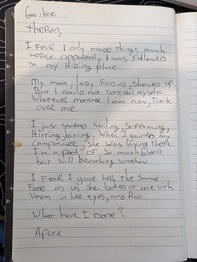 Theren,
I fear I only made things much
worse. Apparently I was followed
to my hiding place.
My mom, Lady Endios, showed up
But I could not control myself
Whatever monster I am now, took
over me.
I just started wailing, screaming,
hitting, biting. When I gained my
composure, she was laying there
in a pool of so much blood
but still breathing somehow.
I fear I gave her the same
fate as us. She looked at me with
venom in her eyes, and ran.
What have I done?